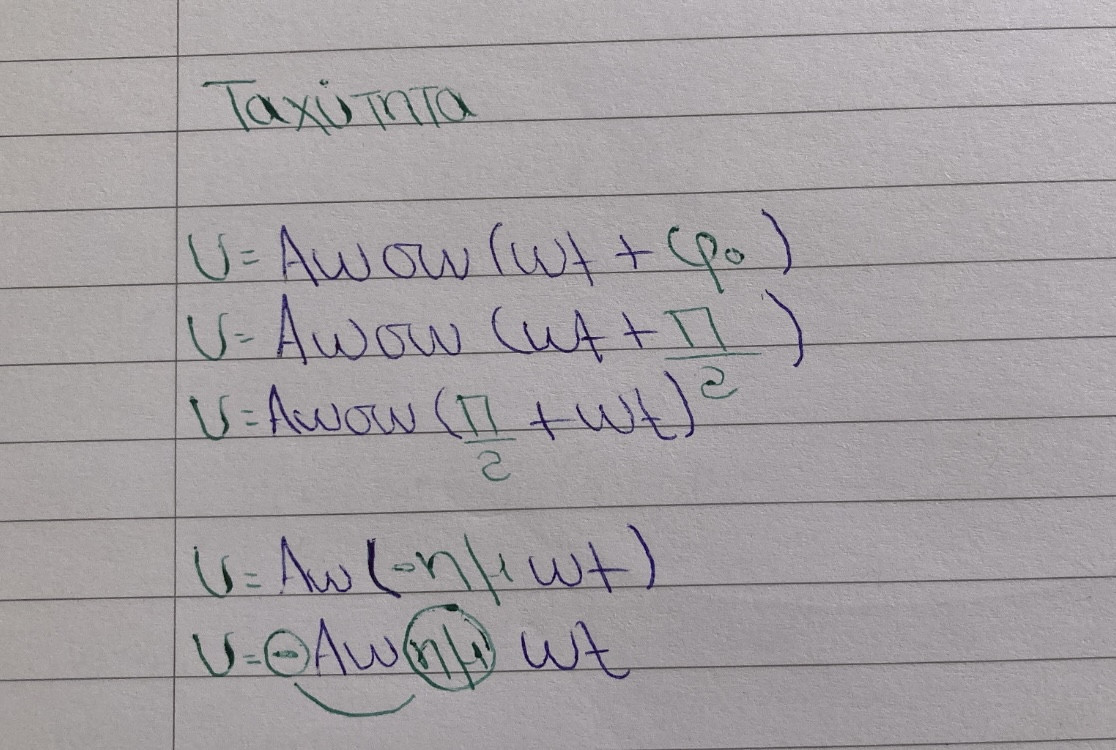 Ταχύτητα
υ = Αωσυν (ωt + φ₀)
υ = Αωσυν (ωt + π/2)
υ = Αωσυν (π/2 + ωt)
υ = Αω (-ημ ωt)
υ = -Αω ημ ωt